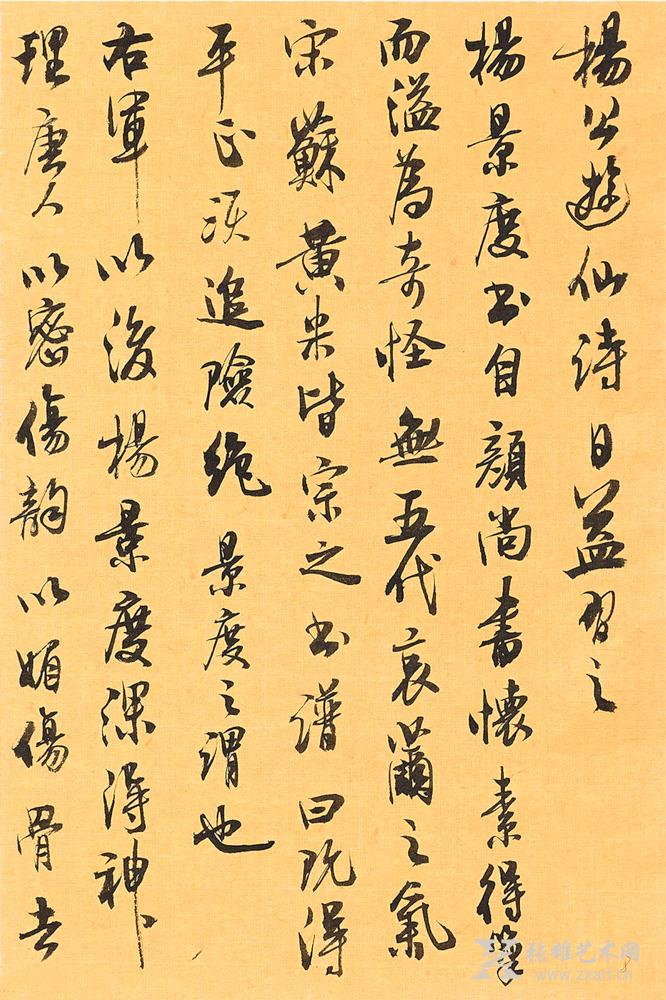 楊公遊仙詩日益習之
楊景度書自顏尚書懷素得筆
而溢為奇怪無五代衰薾之氣
宋蘇黃米皆宗之書譜曰既得
平正須追險絕景度之謂也
右軍以後楊景度深得神
理唐人以密傷韵以媚傷骨去
张雄艺术网
www.zxart.cn